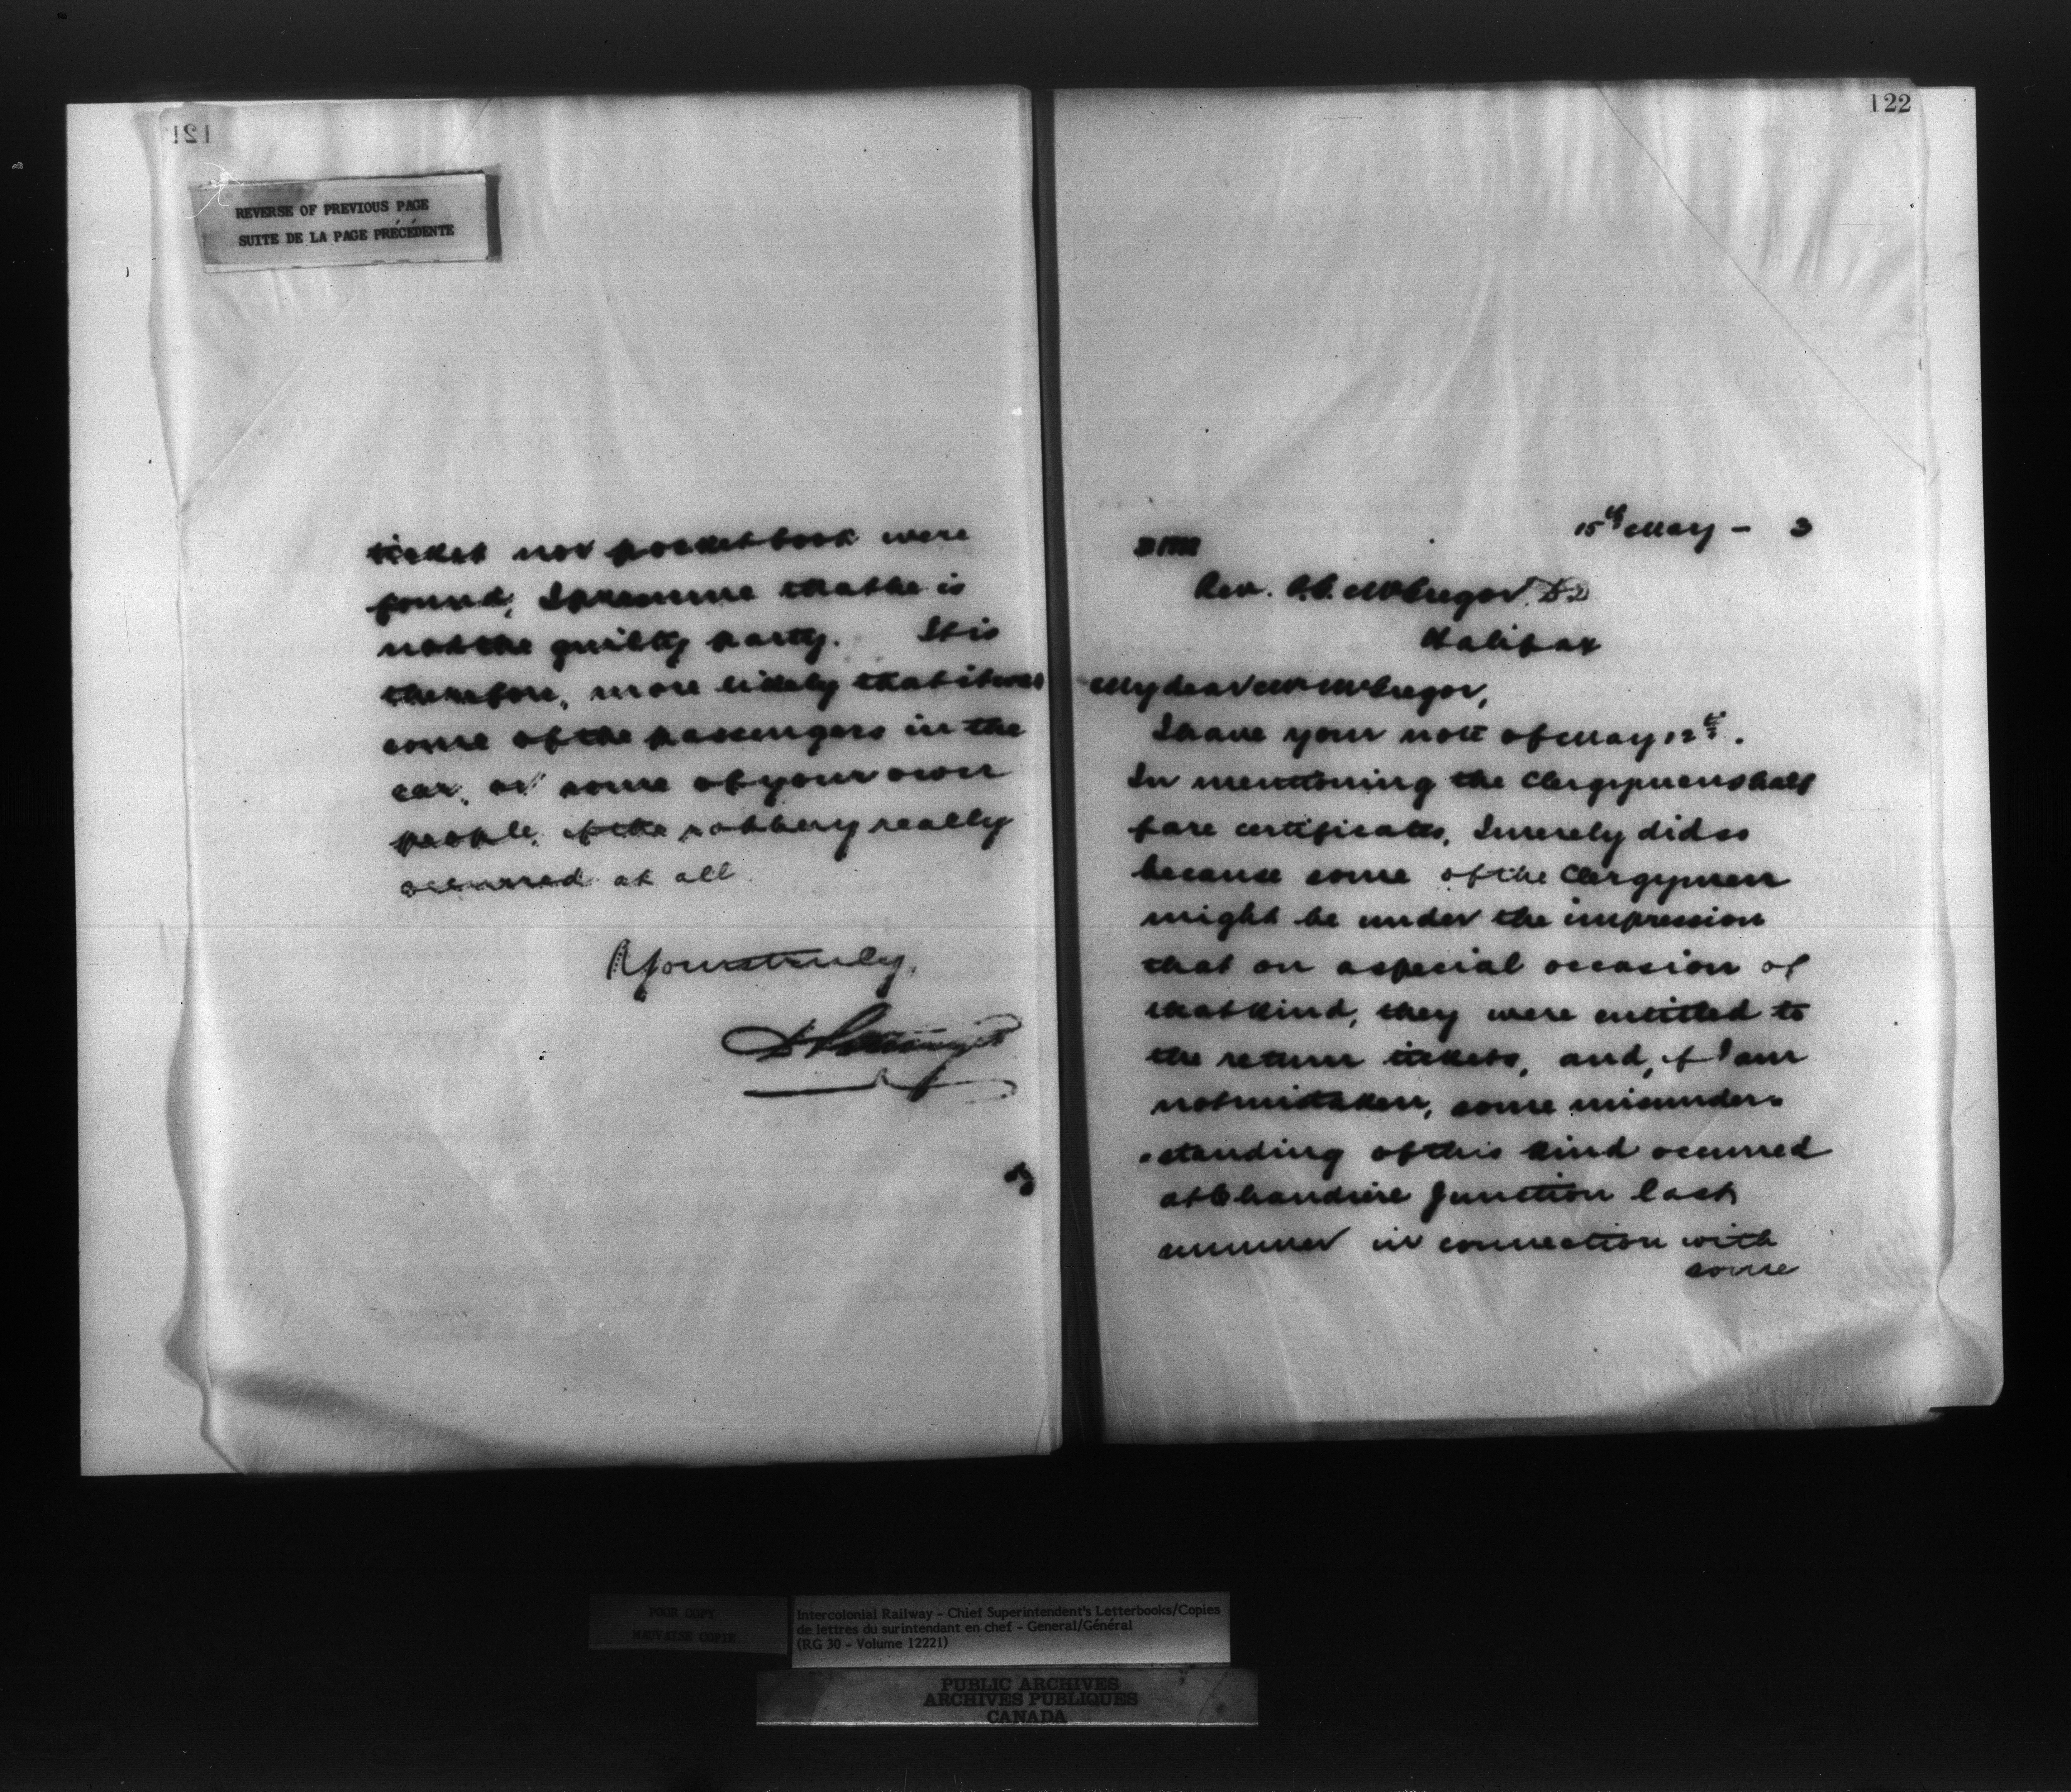 121
REVERSE OF PREVIOUS PAGE
SUITE DE LA PAGE PRÉCÉDENTE
ticket nor pocketbook were
found, I presume that he is
not the guilty party. It is
therefore, more likely that it was
some of the passengers in the
car, or some of your own
people, if the robbery really
occurred at all.
Yours truly,
122
15th May - 3
Rev. P. G. McGregor. D.D
Halifax
My dear Mr McGregor,
I have your note of May 12th.
In mentioning the Clergymens half
fare certificates, I merely did so
because some of the Clergymen
might be under the impression
that on a special occasion of
that kind, they were entitled to
the return tickets, and, if I am
not mistaken, some misunder-
-standing of this kind occurred
at Chaudiere Junction last
summer in connection with
some
POOR COPY
MAUVAISE COPIE
Intercolonial Railway - Chief Superintendent's Letterbooks/Copies
de lettres du surintendant en chef - General/Général
(RG 30 - Volume 12221)
PUBLIC ARCHIVES
ARCHIVES PUBLIQUES
CANADA